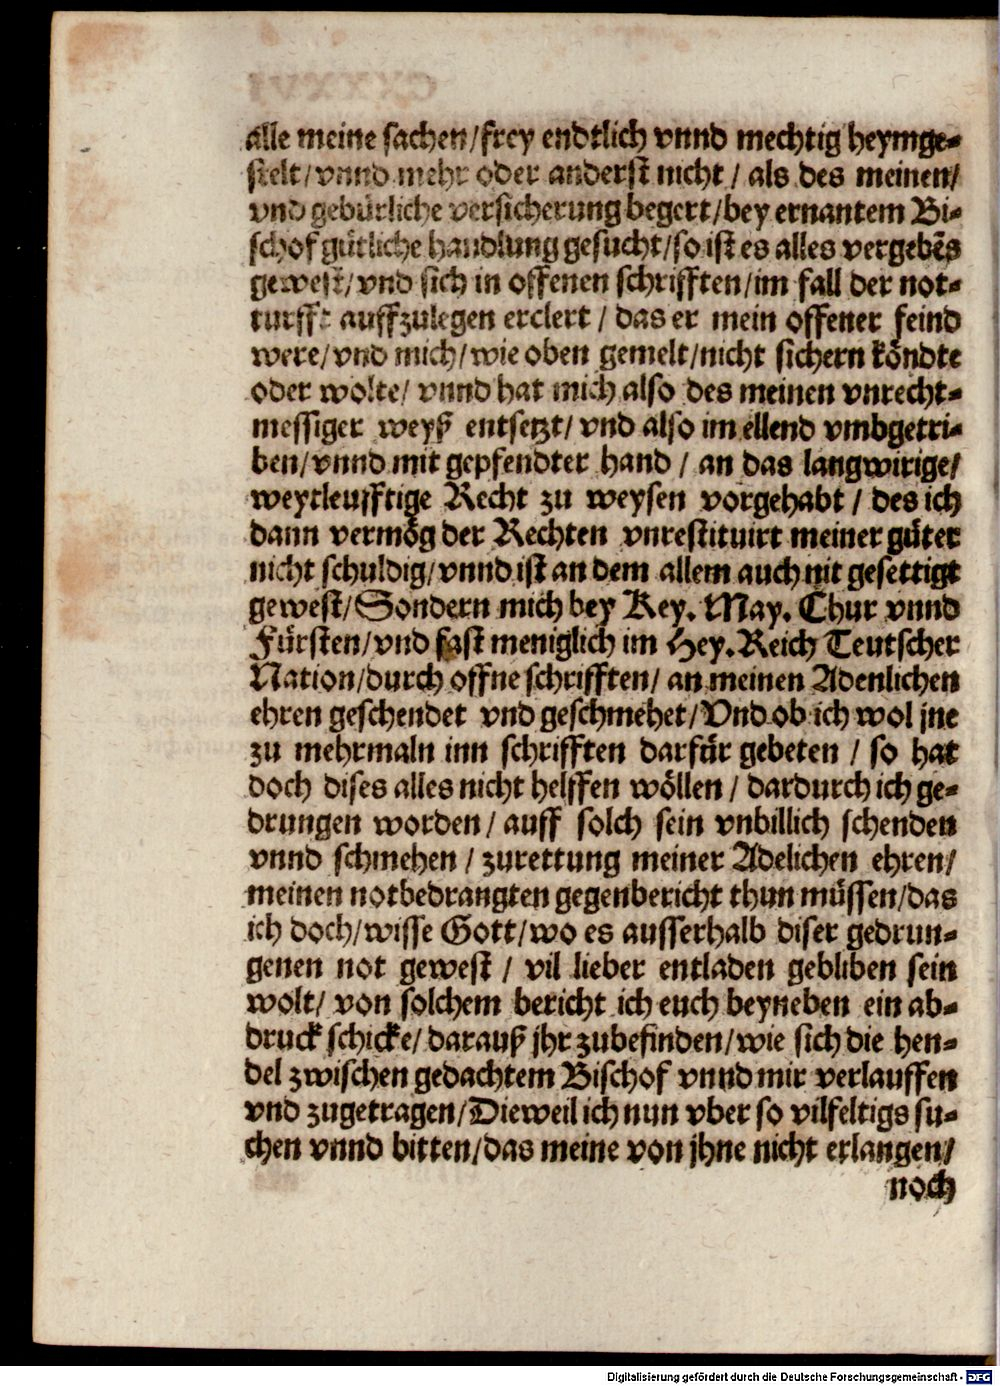 alle meine sachen/frey endtlich vnnd mechtig heymge-
stelt/vnnd mehr oder anderst nicht / als des meinen/
vnd gebürliche versicherung begert/bey ernantem Bi-
schof gütliche handlung gesucht/so ist es alles vergebẽs
gewest/vnd sich in offenen schrifften/im fall der not-
turfft auffzulegen erclert / das er mein offener feind
were/vnd mich/wie oben gemelt/nicht sichern köndte
oder wolte/ vnnd hat mich also des meinen vnrecht-
messiger weyß entsetzt/ vnd also im ellend vmbgetri-
ben/vnnd mit gepfendter hand / an das langwirige/
weytleufftige Recht zu weysen vorgehabt / des ich
dann vermög der Rechten vnrestituirt meiner güter
nicht schuldig/vnnd ist an dem allem auch nit gesettigt
gewest/Sondern mich bey Key. May. Chur vnnd
Fürsten/vnd fast meniglich im Hey.Reich Teutscher
Nation/durch offne schrifften/ an meinen Adenlichen
ehren geschendet vnd geschmehet/Vnd ob ich wol jne
zu mehrmaln inn schrifften darfür gebeten / so hat
doch dises alles nicht helffen wöllen / dardurch ich ge-
drungen worden/ auff solch sein vnbillich schenden
vnnd schmehen / zurettung meiner Adelichen ehren/
meinen notbedrangten gegenbericht thun müssen/das
ich doch/wisse Gott/wo es ausserhalb diser gedrun-
genen not gewest / vil lieber entladen gebliben sein
wolt/ von solchem bericht ich euch beyneben ein ab-
druck schicke/darauß jhr zubefinden/wie sich die hen-
del zwischen gedachtem Bischof vnnd mir verlauffen
vnd zugetragen/Dieweil ich nun vber so vilfeltigs su-
chen vnnd bitten/das meine von jhne nicht erlangen/
noch
Digitalisierung gefördert durch die Deutsche Forschungsgemeinschaft - DFG